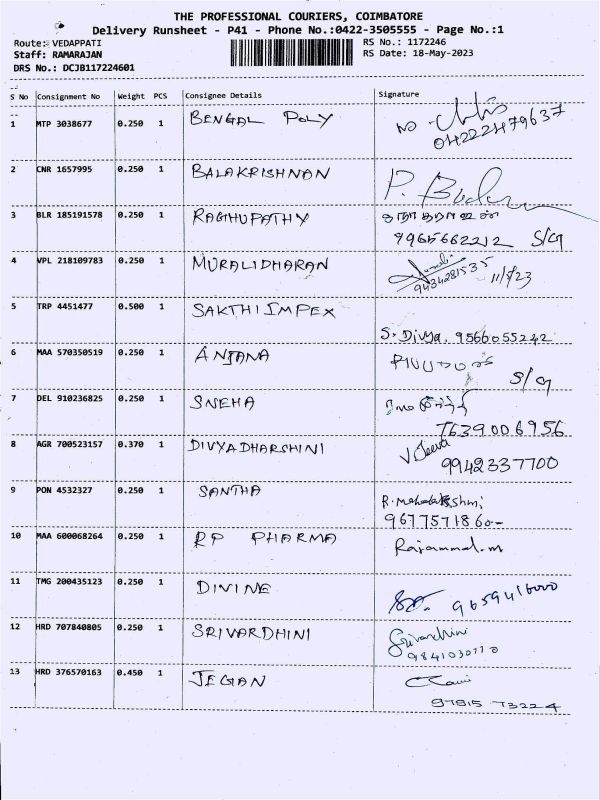 THE PROFESSIONAL COURIERS, COIMBATORE
Delivery Runsheet - P41 - Phone No.:0422-3505555 - Page No.:1
Route: VEDAPPATI
RS No.: 1172246
Staff: RAMARAJAN
RS Date: 18-May-2023
DRS No.: DCJB117224601
S No Consignment No Weight PCS Consignee Details Signature
1 MTP 3038677 0.250 1 BENGAL POLY
04222479637
2 CNR 1657995 0.250 1 BALAKRISHNAN
3 BLR 185191578 0.250 1 RAGHUPATHY
9965662212
4 VPL 218109783 0.250 1 MURALIDHARAN
9434281535
5 TRP 4451477 0.500 1 SAKTHI IMPEX
S. Divya. 9566055242
6 MAA 570350519 0.250 1 ANJANA
7 DEL 910236825 0.250 1 SNEHA
7639006956
8 AGR 700523157 0.370 1 DIVYADHARSHINI V. Jeeva
9942337700
9 PON 4532327 0.250 1 SANTHA
R. Mahalakshmi
9677571860-
10 MAA 600068264 0.250 1 RP PHARMA Rajammal.m
11 TMG 200435123 0.250 1 DIVINE
12 HRD 707840805 0.250 1 SRIVARDHINI Srivardhini
13 HRD 376570163 0.450 1 JEGAN
97915 73224